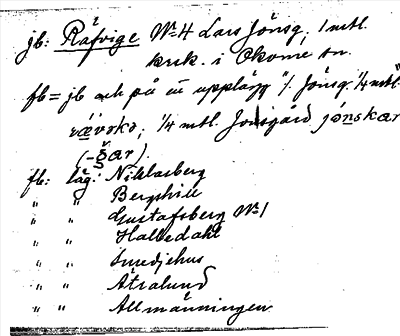 jb: Räfvige No 4 Lars Jönsg, 1 mtl.
krik. i Okome sn.
fb = jb och på upplägg "/. Jönsg. 1/4 mtl"
rävskə, 1/4 mtl. Jonsgård jönskar
(-gar).
fb: läg: Niklasberg
" " Bergshill
" " Gustafsberg No 1
" " Halledahl
" " Smedjehus
" " Ätralund
" " Allmänningen